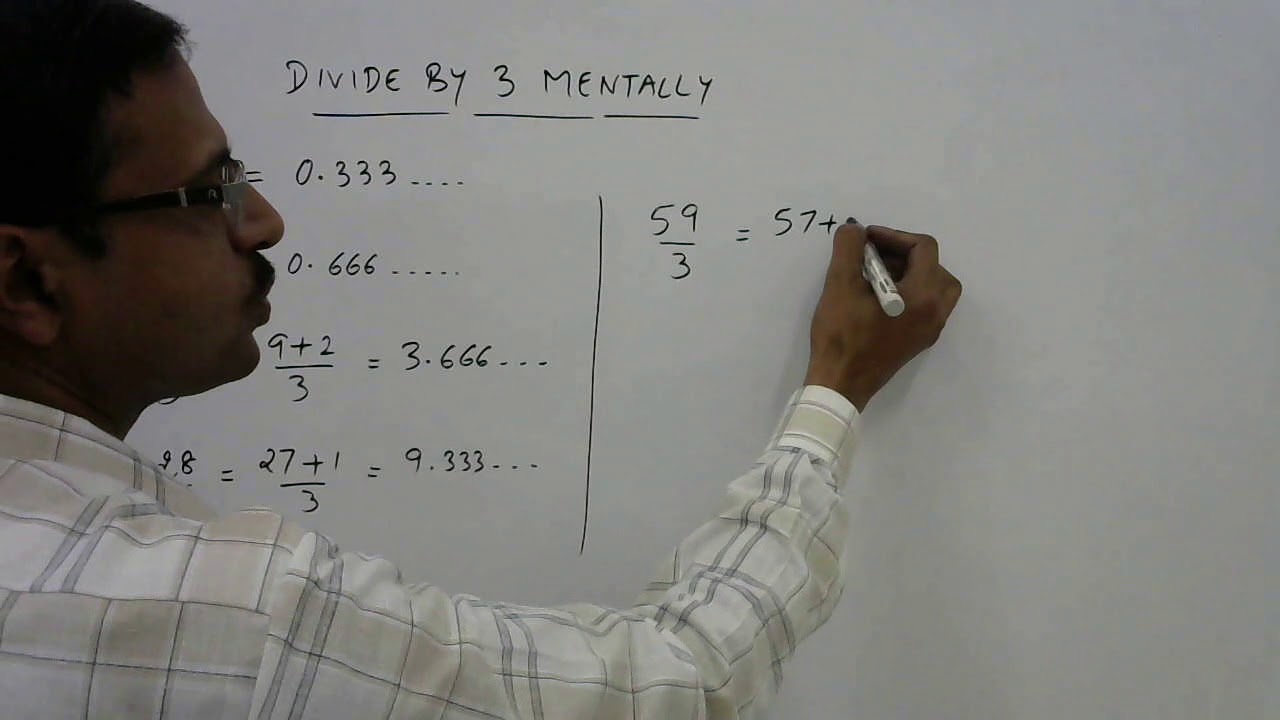 DIVIDE BY 3 MENTALLY
= 0.333....
0.666.....
9+2
3
= 3.666...
28 = 27+1
3
= 9.333...
59
3
= 57+